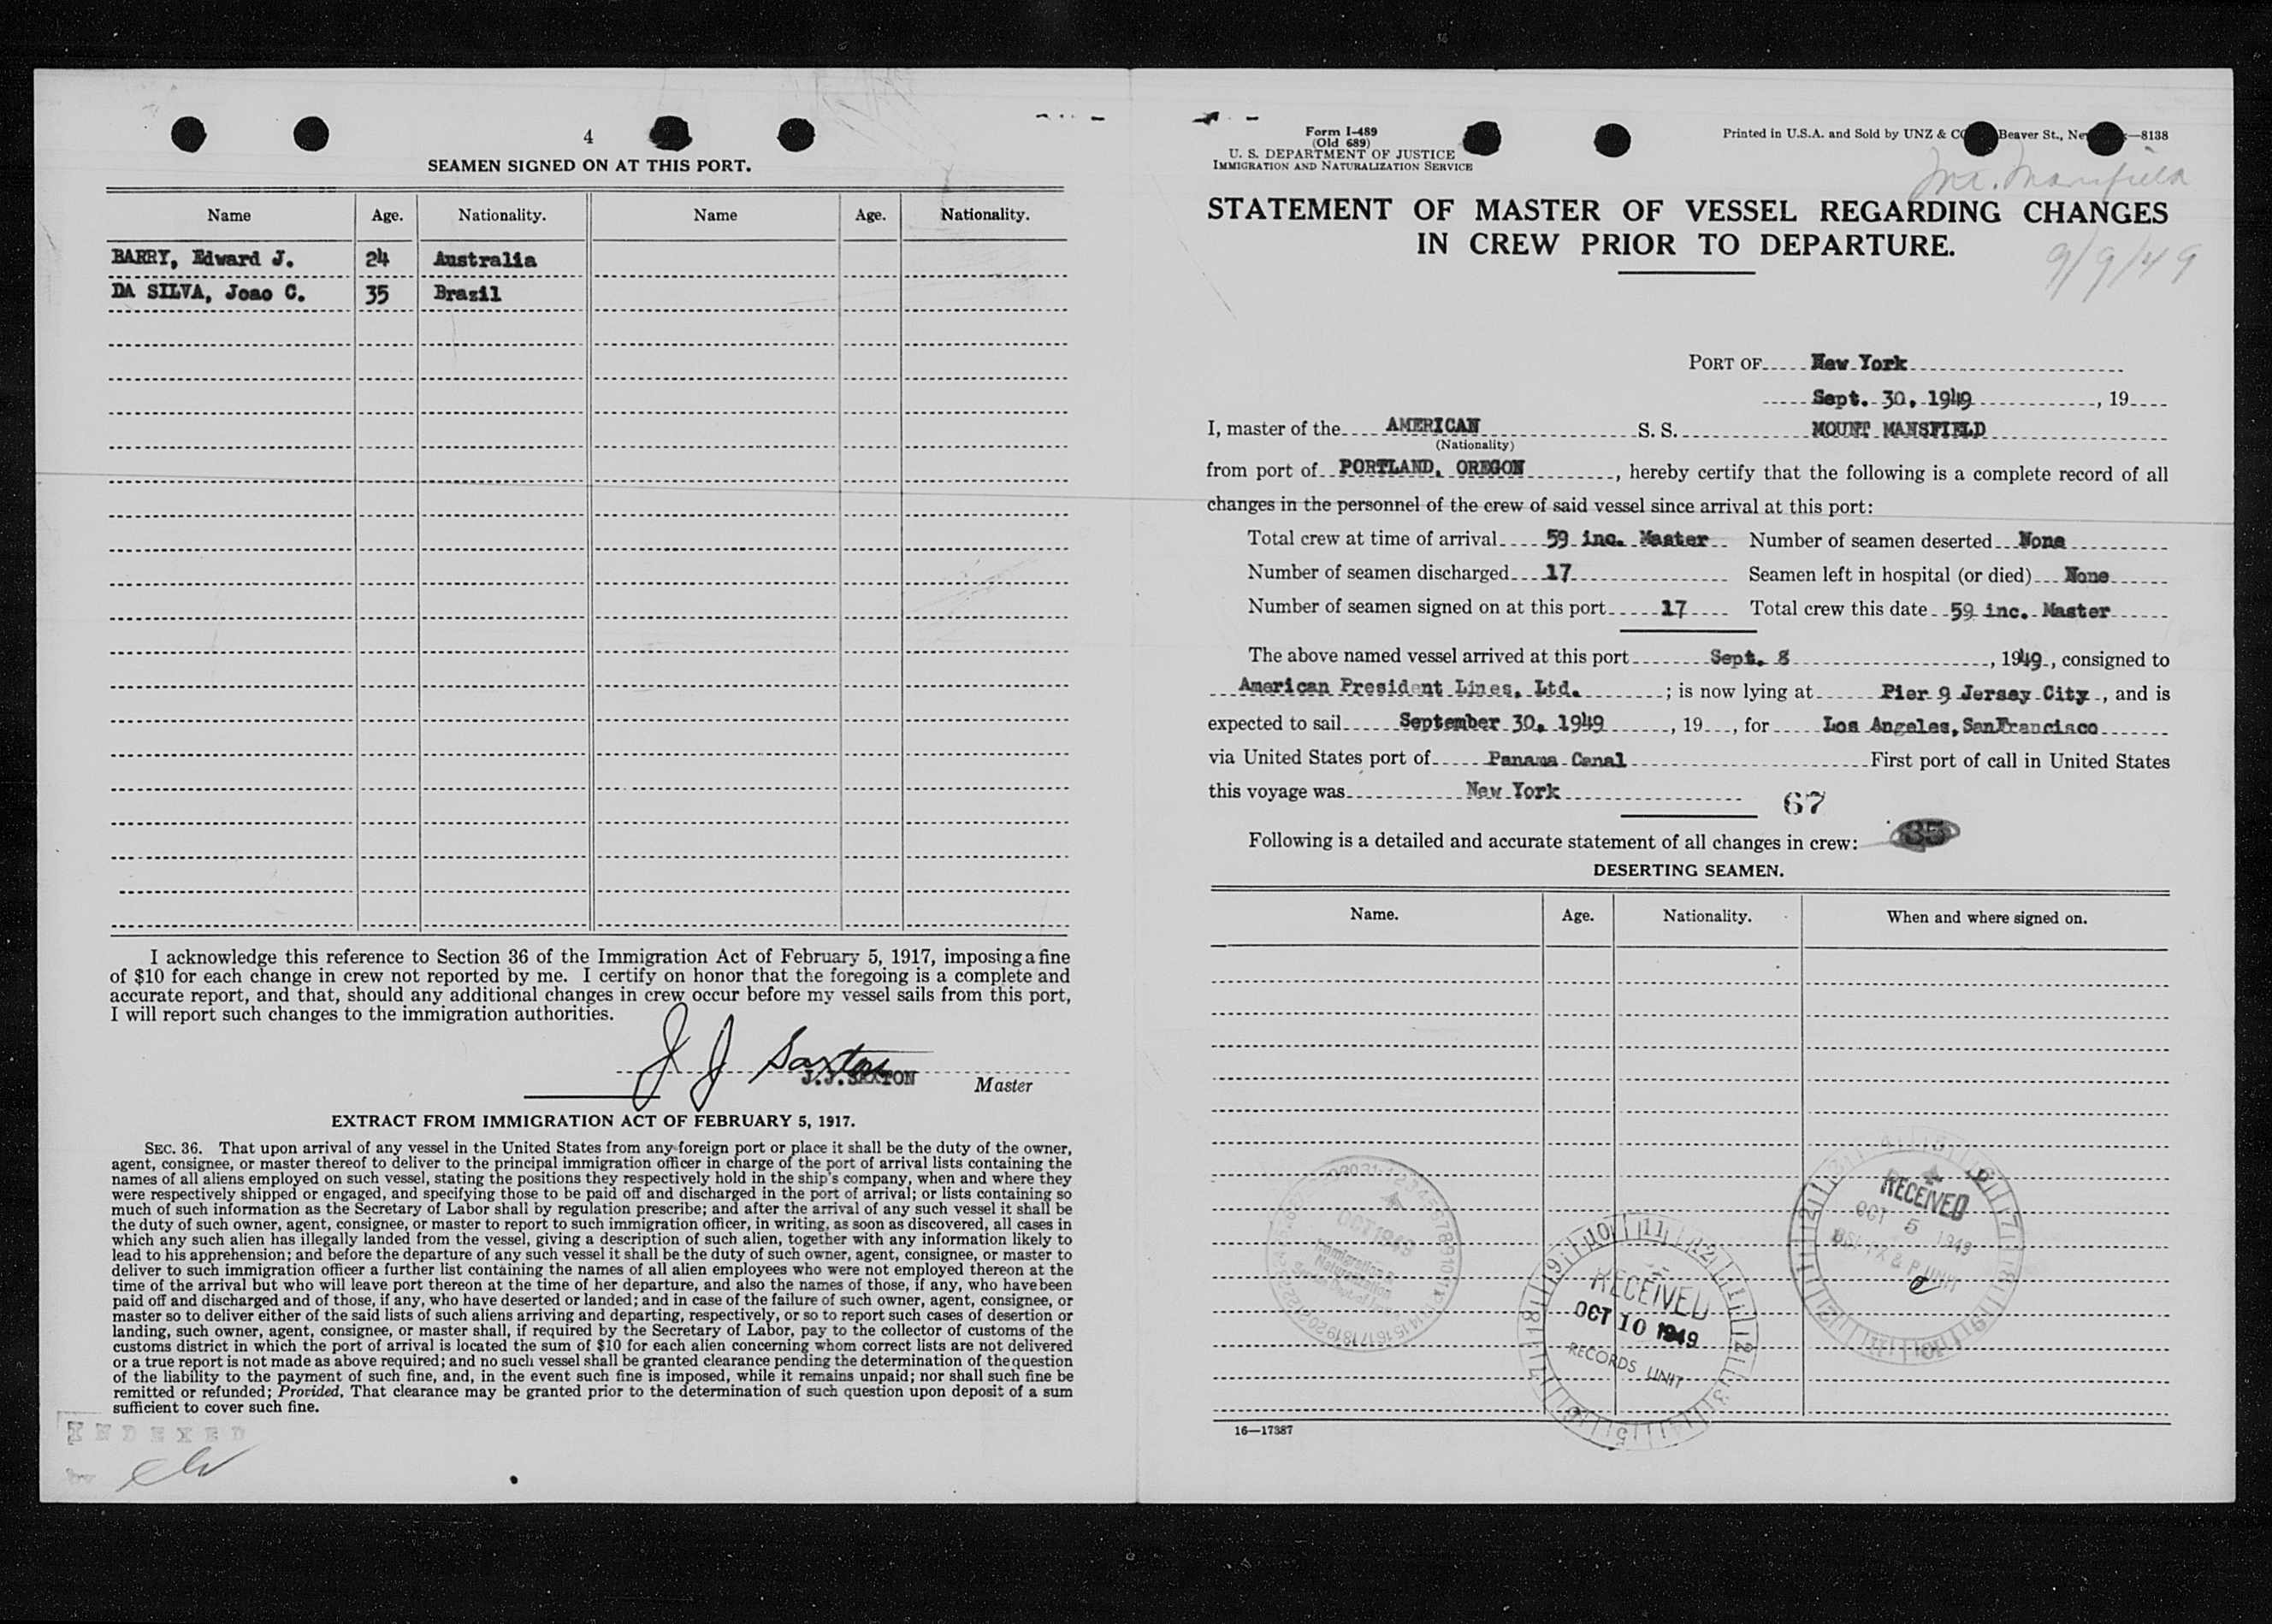 4
SEAMEN SIGNED ON AT THIS PORT.
Name Age. Nationality. Name Age. Nationality.
BARRY, Edward J. 24 Australia
DA SILVA, Joao C. 35 Brazil
I acknowledge this reference to Section 36 of the Immigration Act of February 5, 1917, imposing a fine
of $10 for each change in crew not reported by me. I certify on honor that the foregoing is a complete and
accurate report, and that, should any additional changes in crew occur before my vessel sails from this port,
I will report such changes to the immigration authorities.
J J Saxton
J.J.SAXTON Master
EXTRACT FROM IMMIGRATION ACT OF FEBRUARY 5, 1917.
SEC. 36. That upon arrival of any vessel in the United States from any foreign port or place it shall be the duty of the owner,
agent, consignee, or master thereof to deliver to the principal immigration officer in charge of the port of arrival lists containing the
names of all aliens employed on such vessel, stating the positions they respectively hold in the ship's company, when and where they
were respectively shipped or engaged, and specifying those to be paid off and discharged in the port of arrival; or lists containing so
much of such information as the Secretary of Labor shall by regulation prescribe; and after the arrival of any such vessel it shall be
the duty of such owner, agent, consignee, or master to report to such immigration officer, in writing, as soon as discovered, all cases in
which any such alien has illegally landed from the vessel, giving a description of such alien, together with any information likely to
lead to his apprehension; and before the departure of any such vessel it shall be the duty of such owner, agent, consignee, or master to
deliver to such immigration officer a further list containing the names of all alien employees who were not employed thereon at the
time of the arrival but who will leave port thereon at the time of her departure, and also the names of those, if any, who have been
paid off and discharged and of those, if any, who have deserted or landed; and in case of the failure of such owner, agent, consignee, or
master so to deliver either of the said lists of such aliens arriving and departing, respectively, or so to report such cases of desertion or
landing, such owner, agent, consignee, or master shall, if required by the Secretary of Labor, pay to the collector of customs of the
customs district in which the port of arrival is located the sum of $10 for each alien concerning whom correct lists are not delivered
or a true report is not made as above required; and no such vessel shall be granted clearance pending the determination of the question
of the liability to the payment of such fine, and, in the event such fine is imposed, while it remains unpaid; nor shall such fine be
remitted or refunded; Provided, That clearance may be granted prior to the determination of such question upon deposit of a sum
sufficient to cover such fine.
INDEXED
Form I-489
(Old 689)
U. S. DEPARTMENT OF JUSTICE
IMMIGRATION AND NATURALIZATION SERVICE
Printed in U.S.A. and Sold by UNZ & CO Beaver St., Ne —8138
Mt. Mansfield
STATEMENT OF MASTER OF VESSEL REGARDING CHANGES
IN CREW PRIOR TO DEPARTURE.
9/9/49
PORT OF New York
Sept. 30, 1949, 19
I, master of the AMERICAN S. S. MOUNT MANSFIELD
(Nationality)
from port of PORTLAND, OREGON, hereby certify that the following is a complete record of all
changes in the personnel of the crew of said vessel since arrival at this port:
Total crew at time of arrival 59 inc. Master Number of seamen deserted None
Number of seamen discharged 17 Seamen left in hospital (or died) None
Number of seamen signed on at this port 17 Total crew this date 59 inc. Master
The above named vessel arrived at this port Sept. 8, 1949, consigned to
American President Lines, Ltd.; is now lying at Pier 9 Jersey City, and is
expected to sail September 30, 1949, 19, for Los Angeles, SanFrancisco
via United States port of Panama Canal First port of call in United States
this voyage was New York
67
Following is a detailed and accurate statement of all changes in crew: 35
DESERTING SEAMEN.
Name. Age. Nationality. When and where signed on.
OCT 1949
Immigration &
Naturalization
RECEIVED
OCT 10 1949
RECORDS UNIT
RECEIVED
OCT 5 1949
16—17387